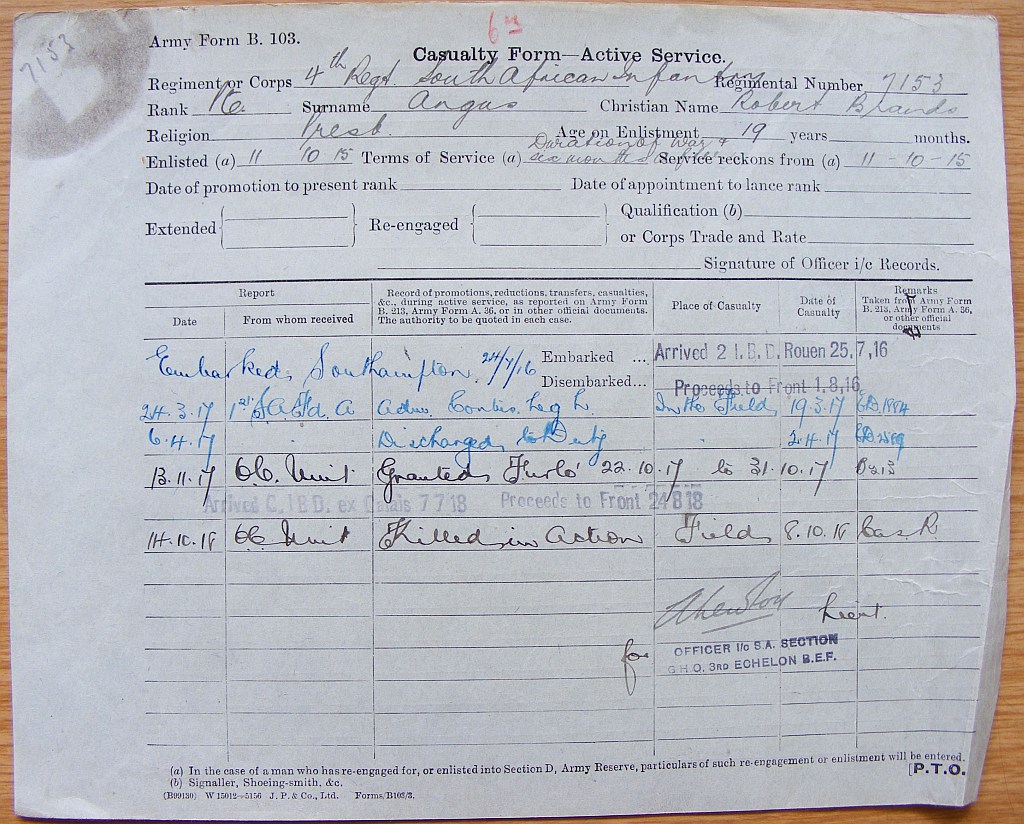 6
7153
Army Form B. 103.
Casualty Form—Active Service.
Regiment or Corps 4th Regt. South African Infantry Regimental Number 7153
Rank Pte. Surname Angus Christian Name Robert Brands
Religion Presb. Age on Enlistment 19 years months.
Duration of War &
Enlisted (a) 11 10 15 Terms of Service (a) six months Service reckons from (a) 11-10-15
Date of promotion to present rank Date of appointment to lance rank
Extended Re-engaged Qualification (b)
or Corps Trade and Rate
Signature of Officer i/c Records.
Report
Date From whom received
Record of promotions, reductions, transfers, casualties,
&c., during active service, as reported on Army Form
B. 213, Army Form A. 36, or in other official documents.
The authority to be quoted in each case.
Place of Casualty
Date of
Casualty
Remarks
Taken from Army Form
B. 213, Army Form A. 36,
or other official
documents
Embarked Southampton 24/7/16 Embarked ... Arrived 2 I.B.D. Rouen 25.7.16
Disembarked... Proceeds to Front 1.8.16
24.3.17 1st S.A. Fd. A Adm. Contus. Leg L. In the Field 19.3.17
6.4.17 " Discharged to Duty " 2.4.17
13.11.17 OC. Unit Granted Furlo' 22.10.17 to 31.10.17 B213
Arrived C.I.B.D. ex Calais 7 7 18 Proceeds to Front 24 8 18
14.10.18 OC Unit Killed in Action Field 8.10.18 Cas. R.
Lieut.
for OFFICER I/c S.A. SECTION
G.H.Q. 3RD ECHELON B.E.F.
(a) In the case of a man who has re-engaged for, or enlisted into Section D, Army Reserve, particulars of such re-engagement or enlistment will be entered.
(b) Signaller, Shoeing-smith, &c.
[P.T.O.
(B99130) W 15012—5156 J. P. & Co., Ltd. Forms/B103/3.